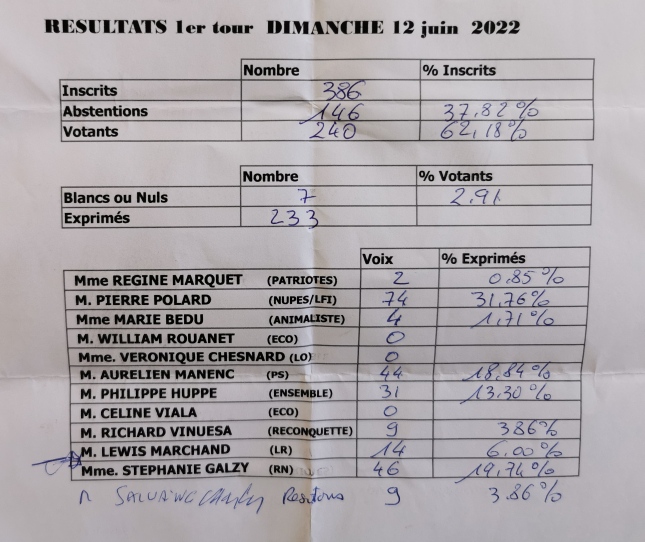 RESULTATS 1er tour DIMANCHE 12 juin 2022
Nombre % Inscrits
Inscrits 386
Abstentions 146 37,82%
Votants 240 62,18%
Nombre % Votants
Blancs ou Nuls 7 2.91
Exprimés 233
Voix % Exprimés
Mme REGINE MARQUET (PATRIOTES) 2 0.85%
M. PIERRE POLARD (NUPES/LFI) 74 31,76%
Mme MARIE BEDU (ANIMALISTE) 4 1,71%
M. WILLIAM ROUANET (ECO) 0
Mme. VERONIQUE CHESNARD (LO) 0
M. AURELIEN MANENC (PS) 44 18,84%
M. PHILIPPE HUPPE (ENSEMBLE) 31 13.30%
M. CELINE VIALA (ECO) 0
M. RICHARD VINUESA (RECONQUETTE) 9 386%
M. LEWIS MARCHAND (LR) 14 6.00%
Mme. STEPHANIE GALZY (RN) 46 19,74%
9 3.86%